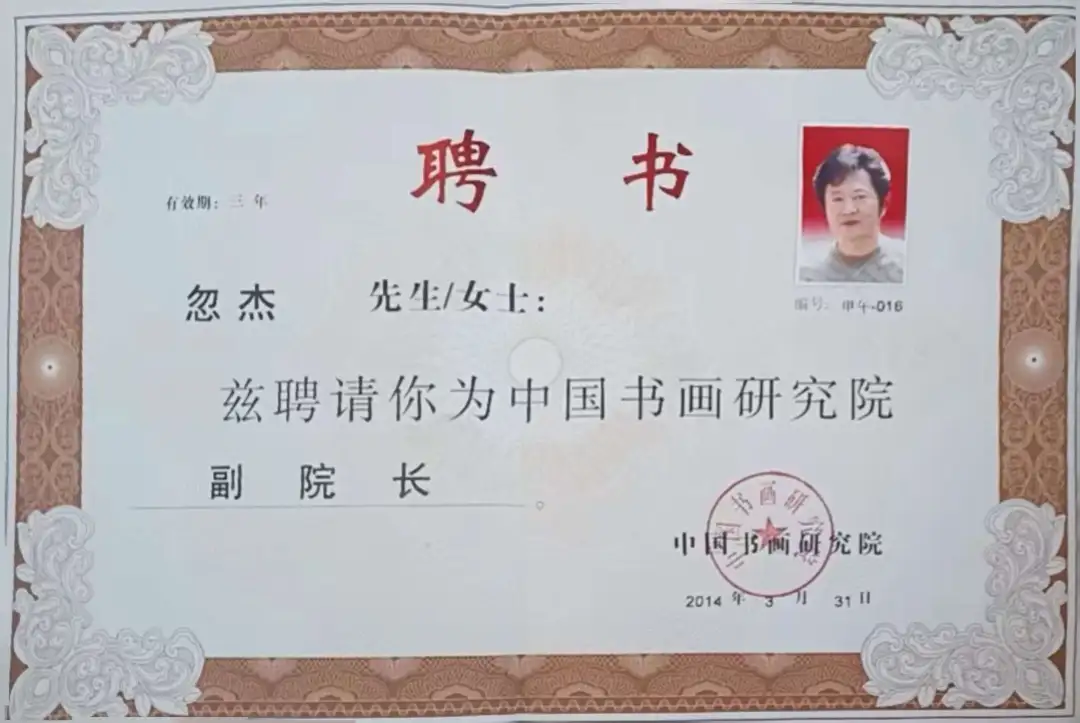 聘 书
有效期：三年
忽杰 先生/女士：
编号：甲午-016
兹聘请你为中国书画研究院
副 院 长 。
中国书画研究院
2014 年 3 月 31 日